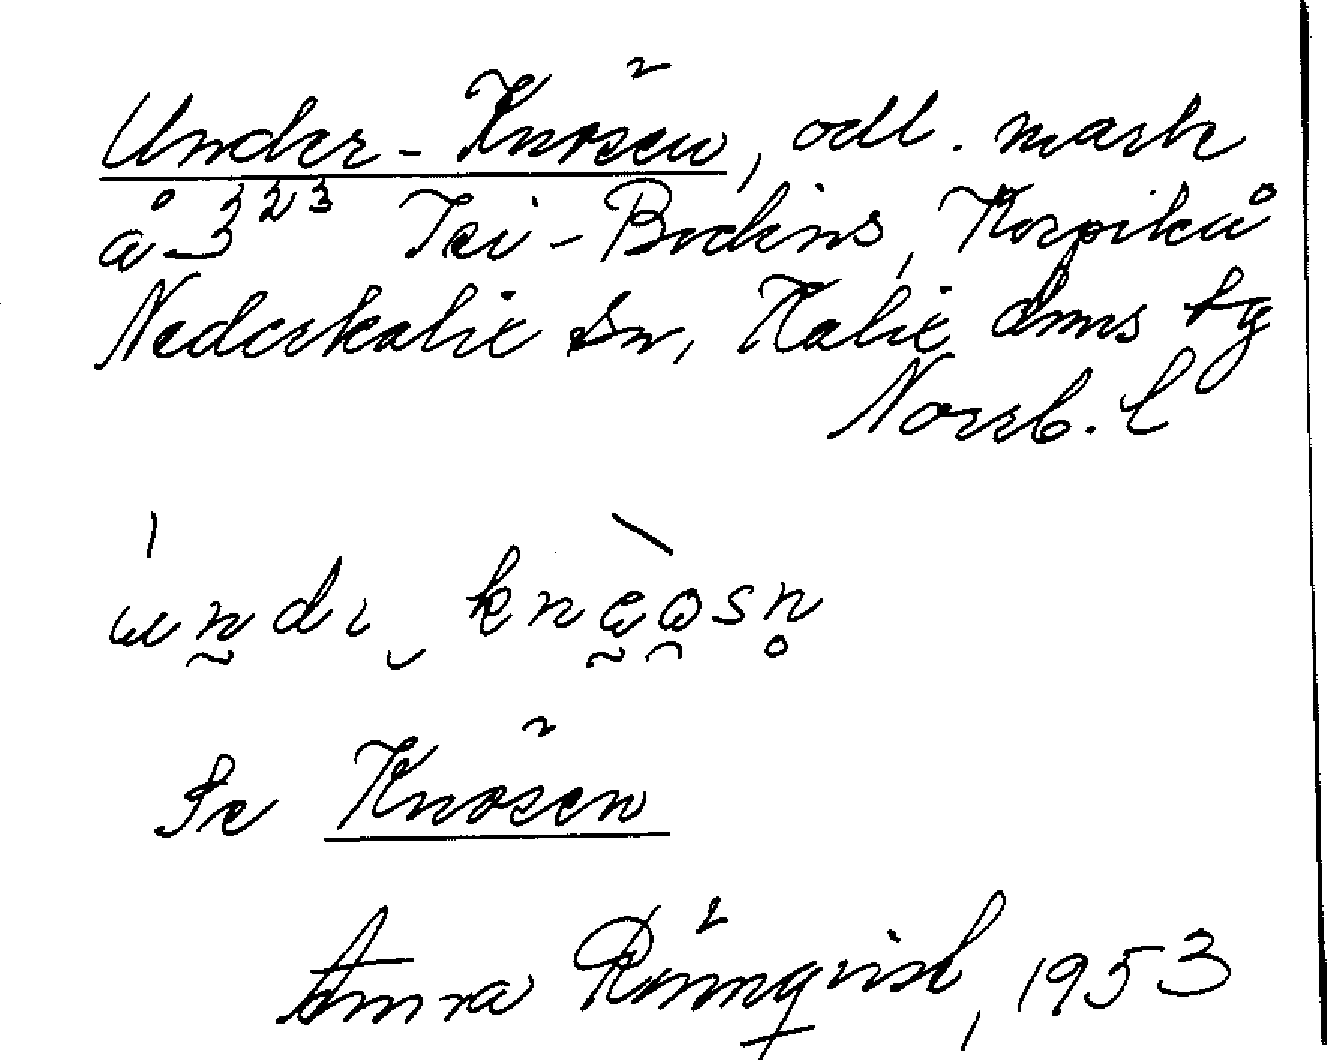 Under-Knösen, odl. mark
å 3²³ Tei-Bodens, Korpikå
Nederkalix sn, Kalix dmns tg
Norrb. l
Se Knösen
Anna Rönnqvist, 1953